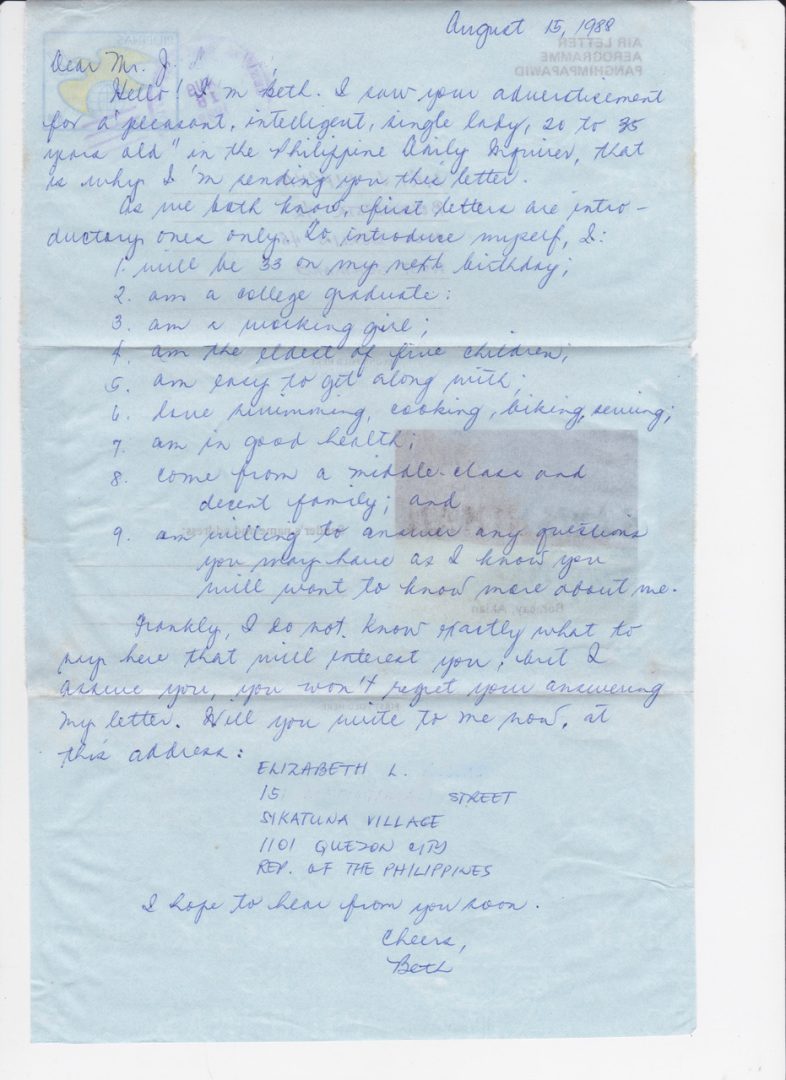 August 15, 1988
AIR LETTER
AEROGRAMME
PANGHIMPAPAWID
PILIPINAS
Dear Mr. J.
Hello! I'm Beth. I saw your advertisement
for a "pleasant, intelligent, single lady, 20 to 35
years old" in the Philippine Daily Inquirer, that
is why I'm sending you this letter.
As we both know, first letters are intro-
ductory ones only. To introduce myself, I:
1. will be 33 on my next birthday;
2. am a college graduate:
3. am a working girl;
4. am the eldest of five children;
5. am easy to get along with;
6. love swimming, cooking, biking, sewing;
7. am in good health;
8. come from a middle-class and
decent family; and
9. am willing to answer any questions
you may have as I know you
will want to know more about me.
Sender's name and address:
Boracay, Aklan
Frankly, I do not know exactly what to
say here that will interest you; but I
assure you, you won't regret your answering
my letter. Will you write to me now, at
this address:
ELIZABETH L.
15 STREET
SIKATUNA VILLAGE
1101 QUEZON CITY
REP. OF THE PHILIPPINES
I hope to hear from you soon.
Cheers,
Beth